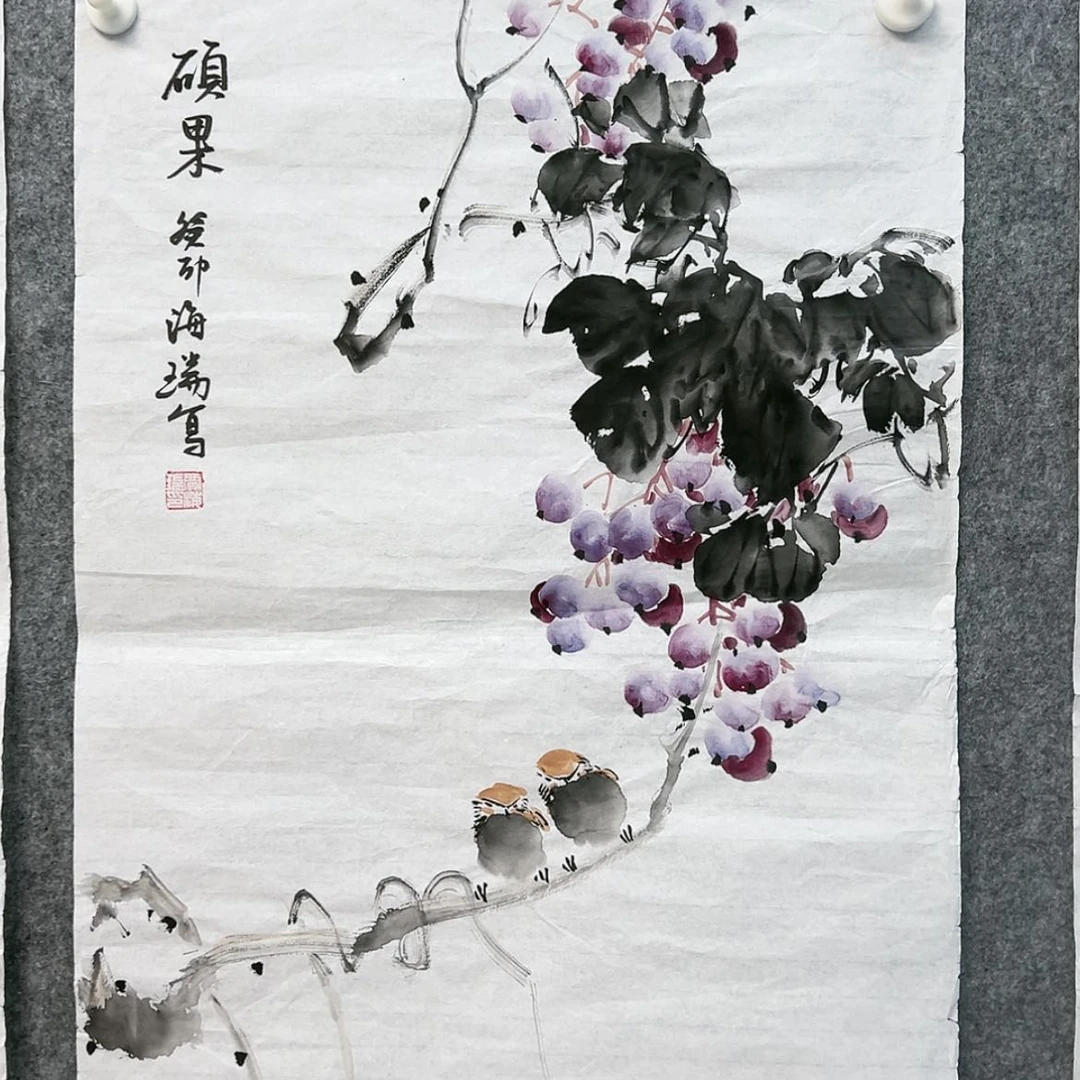 碩果
癸卯海瑞写